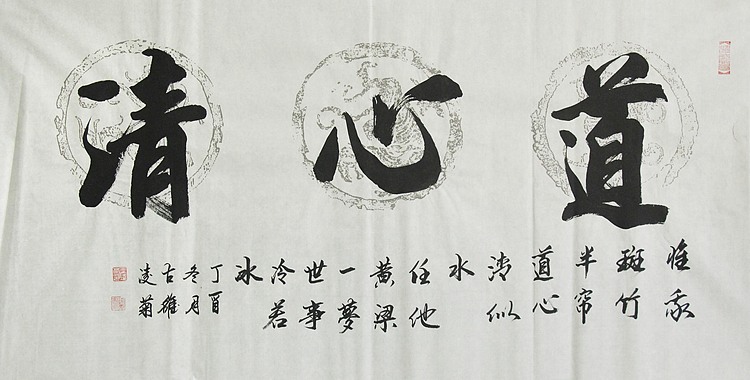 道心清
惟我
斑竹
半帘
道心
清似
水
任他
黄梁
一夢
世事
冷若
冰
丁酉
冬月
古雒
凌菊